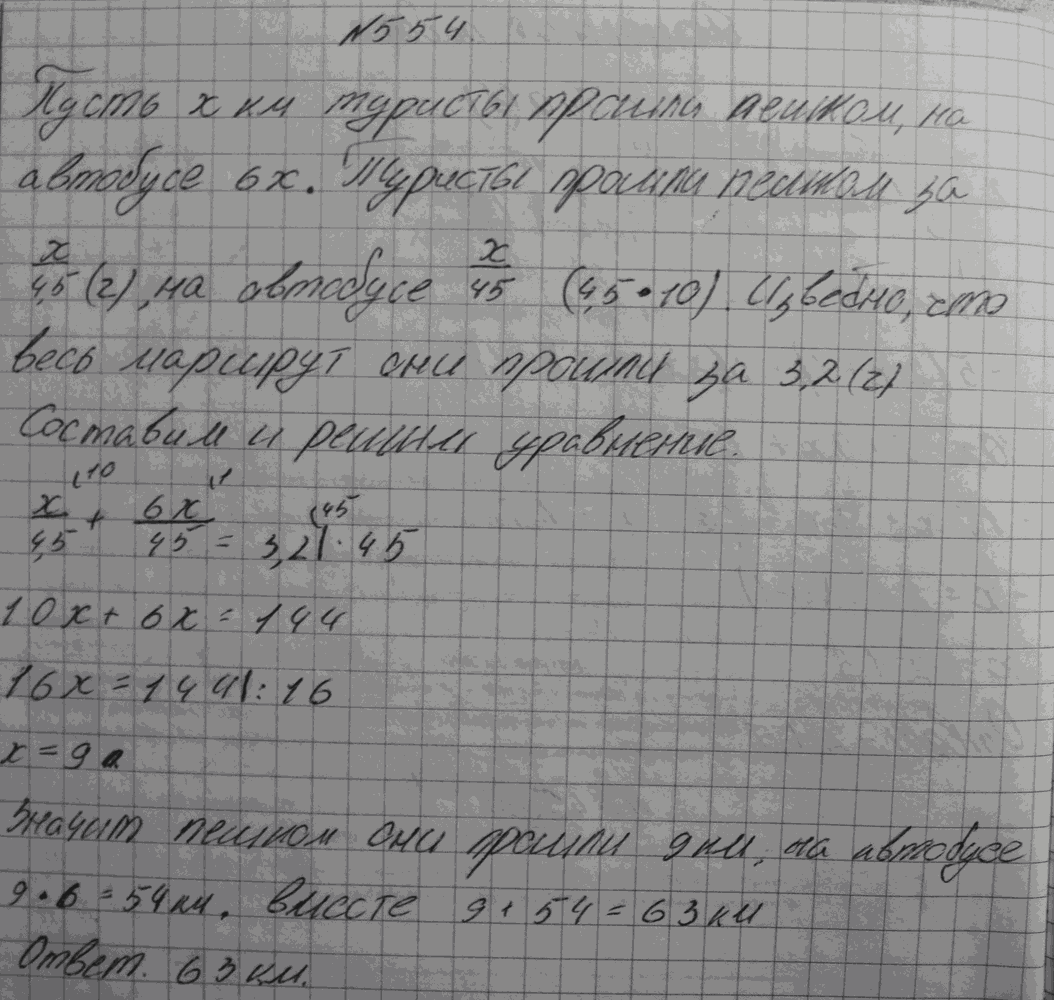 №554.
Пусть x км туристы прошли пешком, на
автобусе 6x. Туристы прошли пешком за
x/4,5 (г), на автобусе x/45 (4,5•10). Извебно, что
весь маршрут они прошли за 3,2(г)
Составим и решим уравнение.
x/4,5 (10 + 6x/45 (1 = 3,2 (45 |·45
10x + 6x = 144
16x = 144|:16
x = 9
Значит пешком они прошли 9км, на автобусе
9•6=54км. вместе 9+54=63км
Ответ. 63км.